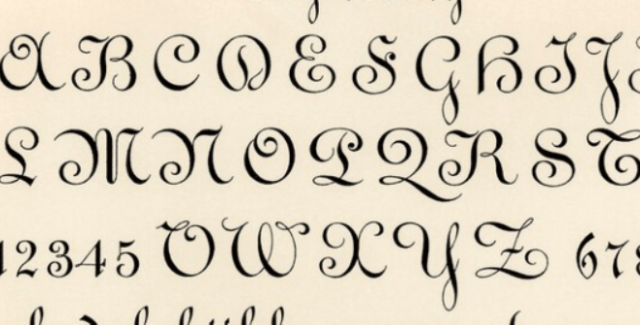 A B C D E F G H I J
L M N O P Q R S T
1 2 3 4 5 V W X Y Z 6 7 8